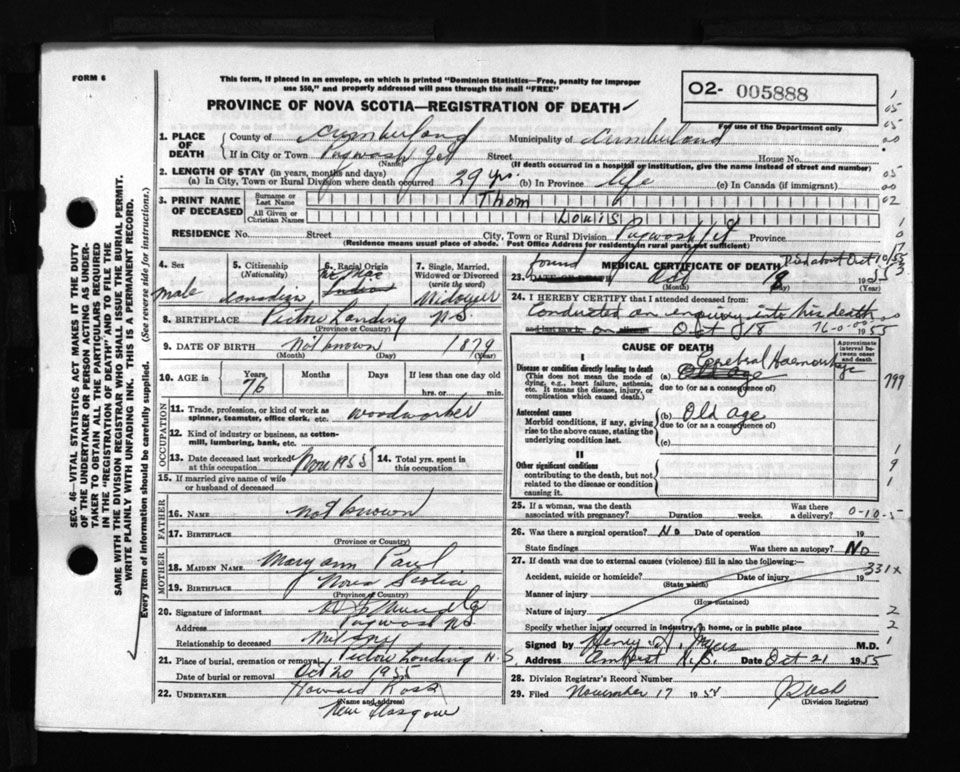 FORM 6
This form, if placed in an envelope, on which is printed "Dominion Statistics—Free, penalty for improper
use $50," and properly addressed will pass through the mail "FREE"
O2- 005888
PROVINCE OF NOVA SCOTIA—REGISTRATION OF DEATH
For use of the Department only
1. PLACE OF DEATH County of Cumberland Municipality of Cumberland
If in City or Town Pugwash Jct Street House No.
(Name) (If death occurred in a hospital or institution, give the name instead of street and number)
2. LENGTH OF STAY (in years, months and days)
(a) In City, Town or Rural Division where death occurred 29 yrs. (b) In Province life (c) In Canada (if immigrant)
3. PRINT NAME OF DECEASED Surname or Last Name Thom
All Given or Christian Names Louis
RESIDENCE No. Street City, Town or Rural Division Pugwash Jct Province
(Residence means usual place of abode. Post Office Address for residents in rural parts not sufficient)
4. Sex male
5. Citizenship (Nationality) Canadian
6. Racial Origin Mic Mac Indian
7. Single, Married, Widowed or Divorced (write the word) Widower
8. BIRTHPLACE Pictou Landing N-S
(Province or Country)
9. DATE OF BIRTH Not known 1879
(Month) (Day) (Year)
10. AGE in Years 76 Months Days If less than one day old
hrs. or min.
OCCUPATION
11. Trade, profession, or kind of work as spinner, teamster, office clerk, etc. woodworker
12. Kind of industry or business, as cotton-mill, lumbering, bank, etc.
13. Date deceased last worked at this occupation 1955 14. Total yrs. spent in this occupation
15. If married give name of wife or husband of deceased
FATHER
16. NAME not known
17. BIRTHPLACE
(Province or Country)
MOTHER
18. MAIDEN NAME Mary ann Paul
19. BIRTHPLACE Nova Scotia
(Province or Country)
20. Signature of informant
Address Pugwash N.S.
Relationship to deceased
21. Place of burial, cremation or removal Pictou Landing N.S.
Date of burial or removal Oct 20 1955
22. UNDERTAKER Howard Ross
(Name and address)
New Glasgow
23. DATE OF DEATH found MEDICAL CERTIFICATE OF DEATH
Oct 18 1955
(Month) (Day)
24. I HEREBY CERTIFY that I attended deceased from:
Conducted an enquiry into his death
on Oct 18 1955
76-0-00
CAUSE OF DEATH
Approximate interval between onset and death
I
Disease or condition directly leading to death
(This does not mean the mode of dying, e.g., heart failure, asthenia, etc. It means the disease, injury, or complication which caused death.)
(a) Cerebral Haemorrhage Old age
due to (or as a consequence of)
799
Antecedent causes
Morbid conditions, if any, giving rise to the above cause, stating the underlying condition last.
(b) Old age
due to (or as a consequence of)
(c)
II
Other significant conditions
contributing to the death, but not related to the disease or condition causing it.
25. If a woman, was the death associated with pregnancy? Duration weeks. Was there a delivery? 0-10-5
26. Was there a surgical operation? No Date of operation 19
State findings Was there an autopsy? No
27. If death was due to external causes (violence) fill in also the following:—
331x
Accident, suicide or homicide? Date of injury 19
(State which)
Manner of injury
(How sustained)
Nature of injury
Specify whether injury occurred in industry, in home, or in public place
Signed by Henry M.D.
Address Amherst N.S. Date Oct 21 1955
28. Division Registrar's Record Number
29. Filed November 17 19
(Division Registrar)
SEC. 46—VITAL STATISTICS ACT MAKES IT THE DUTY
OF THE UNDERTAKER OR PERSON ACTING AS UNDER-
TAKER TO OBTAIN ALL THE PARTICULARS REQUIRED
IN THE "REGISTRATION OF DEATH" AND TO FILE THE
SAME WITH THE DIVISION REGISTRAR WHO SHALL ISSUE THE BURIAL PERMIT.
WRITE PLAINLY WITH UNFADING INK. THIS IS A PERMANENT RECORD.
Every item of information should be carefully supplied. (See reverse side for instructions.)